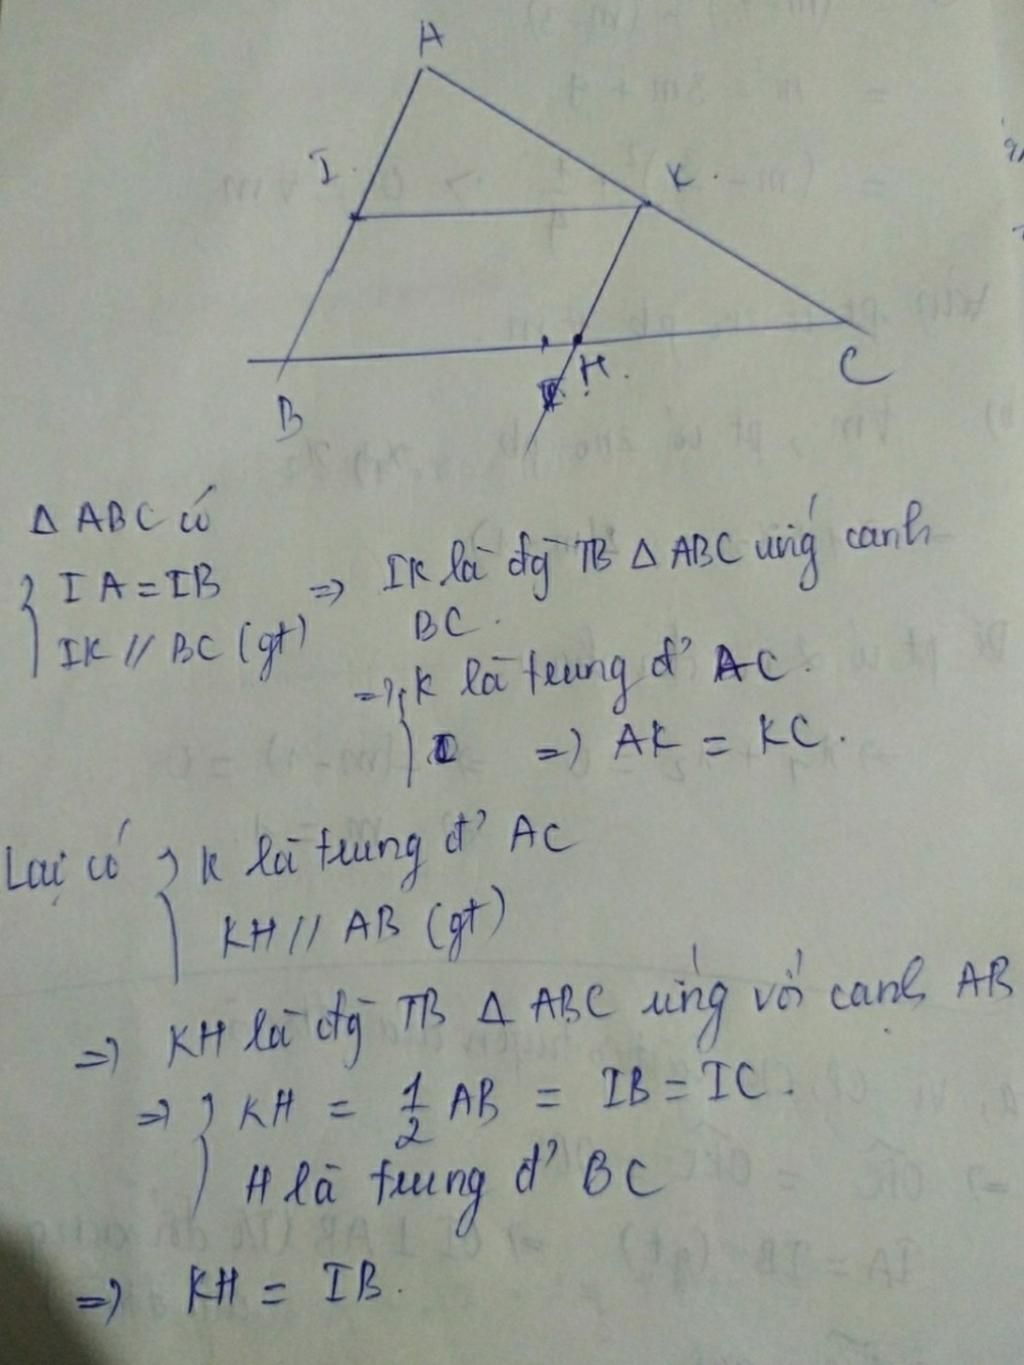 A
I
K
B
H
C
Δ ABC có
IA = IB => IK là đg TB Δ ABC ứng cạnh
IK // BC (gt) BC.
=> K là trung đ' AC.
=) AK = KC.
Lại có K là trung đ' AC
KH // AB (gt)
=) KH là đg TB Δ ABC ứng với cạnh AB
=) KH = 1/2 AB = IB = IC.
H là trung đ' BC
=) KH = IB.